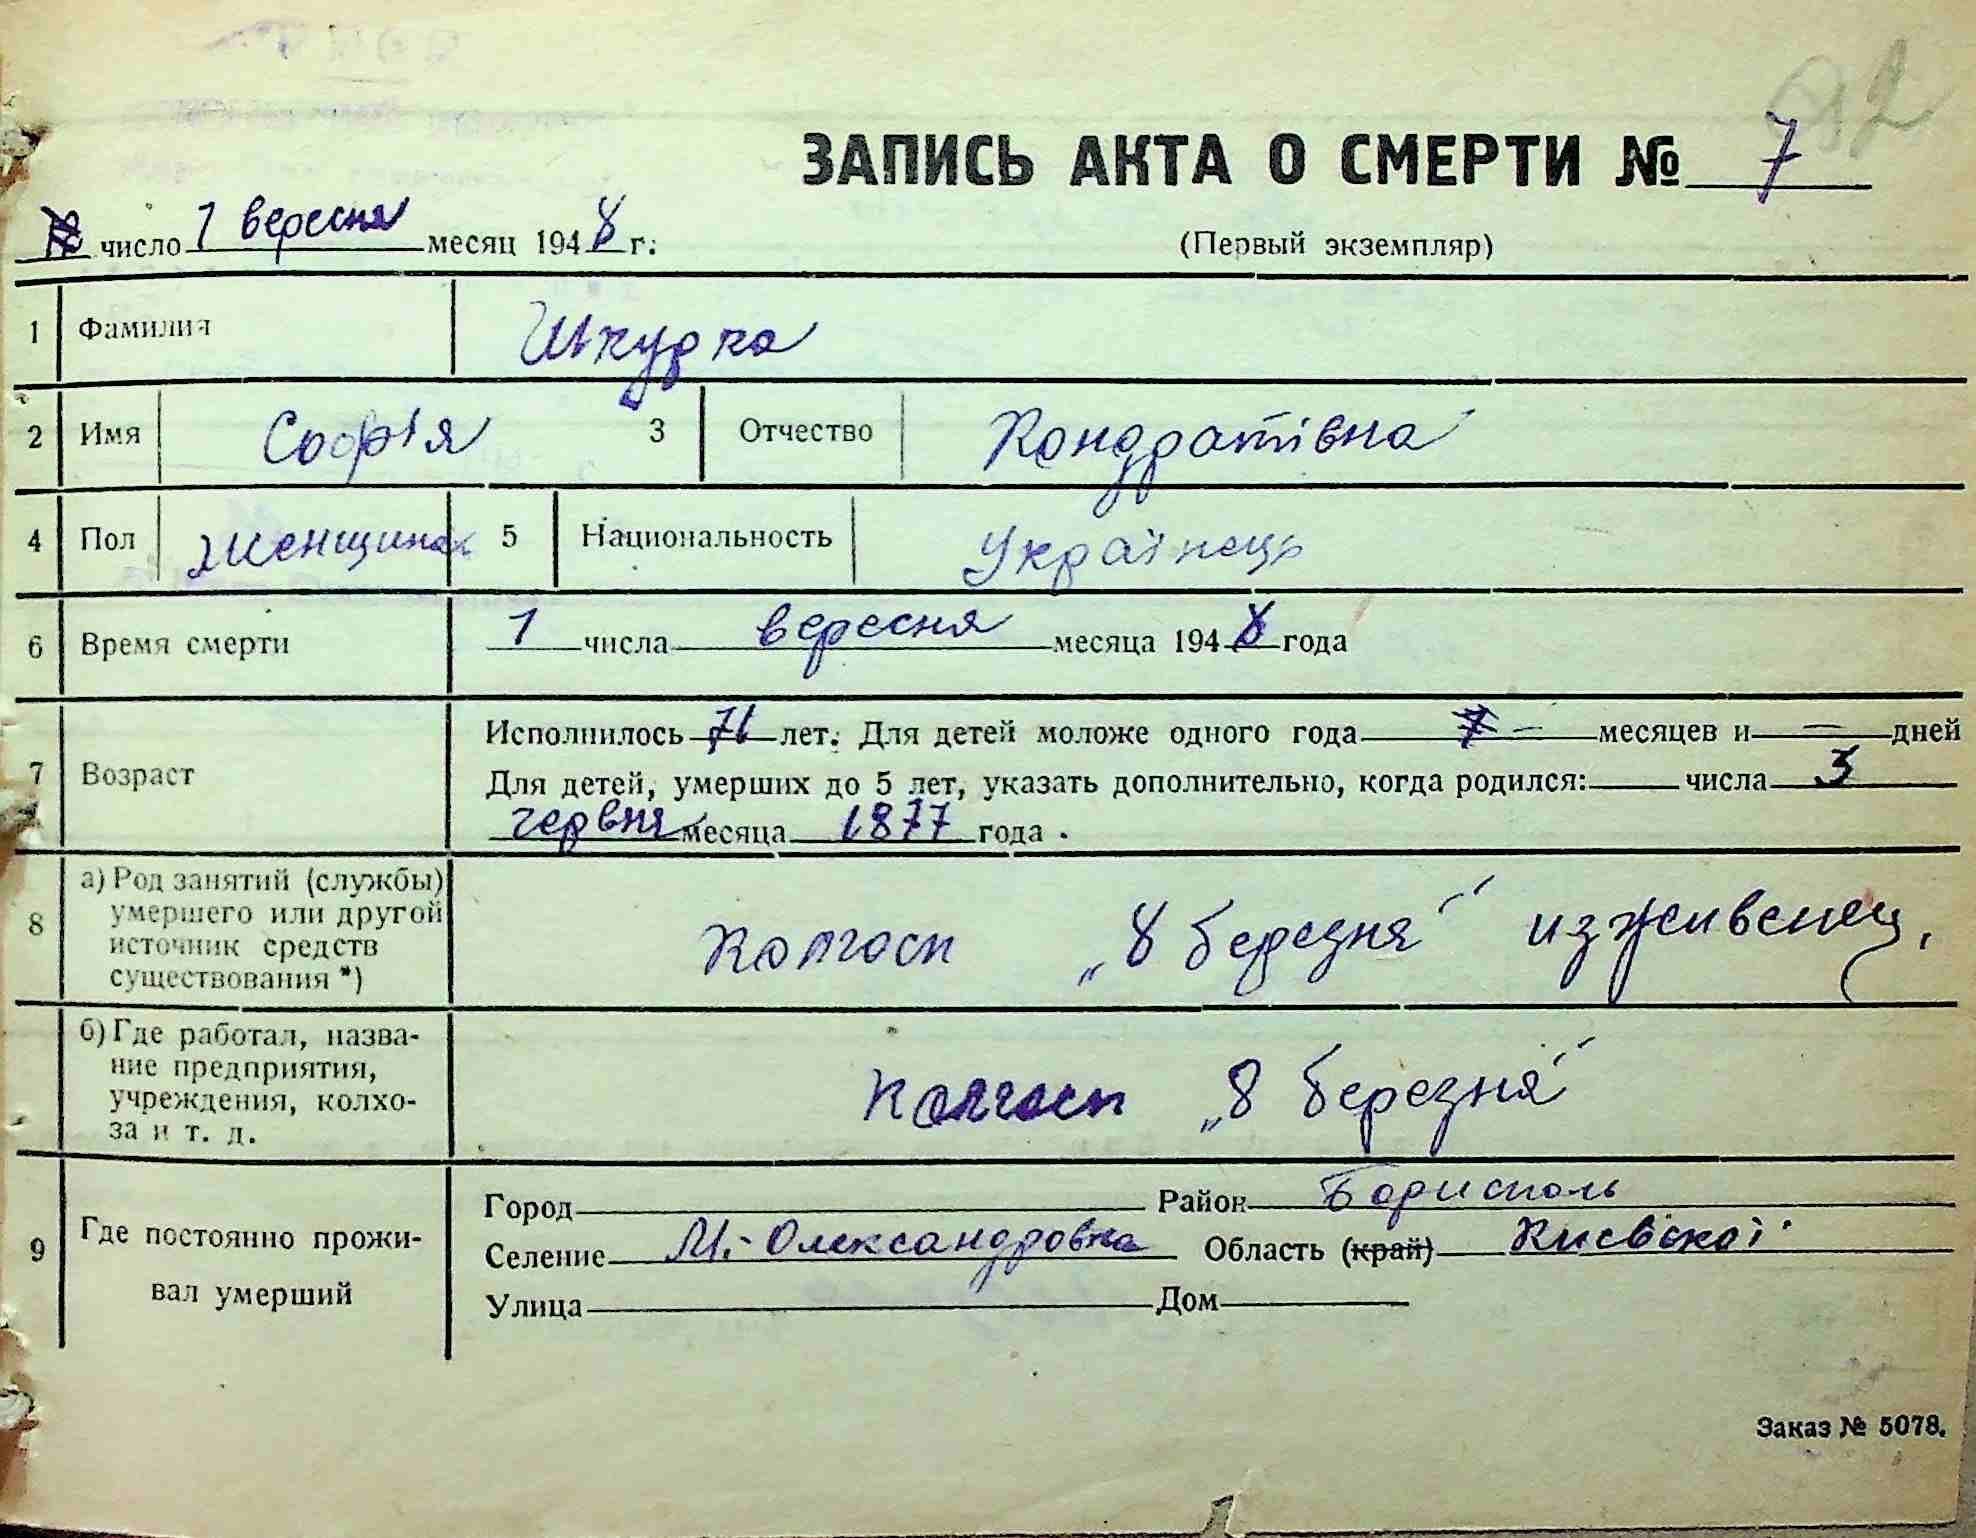 92
ЗАПИСЬ АКТА О СМЕРТИ № 7
число 1 вересня месяц 1948 г.
(Первый экземпляр)
1 Фамилия Шкурка
2 Имя Софія 3 Отчество Кондратівна
4 Пол Женщина 5 Национальность Українець
6 Время смерти 1 числа вересня месяца 1948 года
Исполнилось 71 лет. Для детей моложе одного года — месяцев и — дней
7 Возраст Для детей, умерших до 5 лет, указать дополнительно, когда родился: числа 3
червня месяца 1877 года.
8 а) Род занятий (службы)
умершего или другой
источник средств
существования *)
Колгосп „8 березня" изживенец,
б) Где работал, назва-
ние предприятия,
учреждения, колхо-
за и т. д.
Колгосп „8 березня"
9 Где постоянно прожи-
вал умерший
Город Район Бориспол‌ь
Селение М.-Олександровка Область (край) Киевскої
Улица Дом
Заказ № 5078.